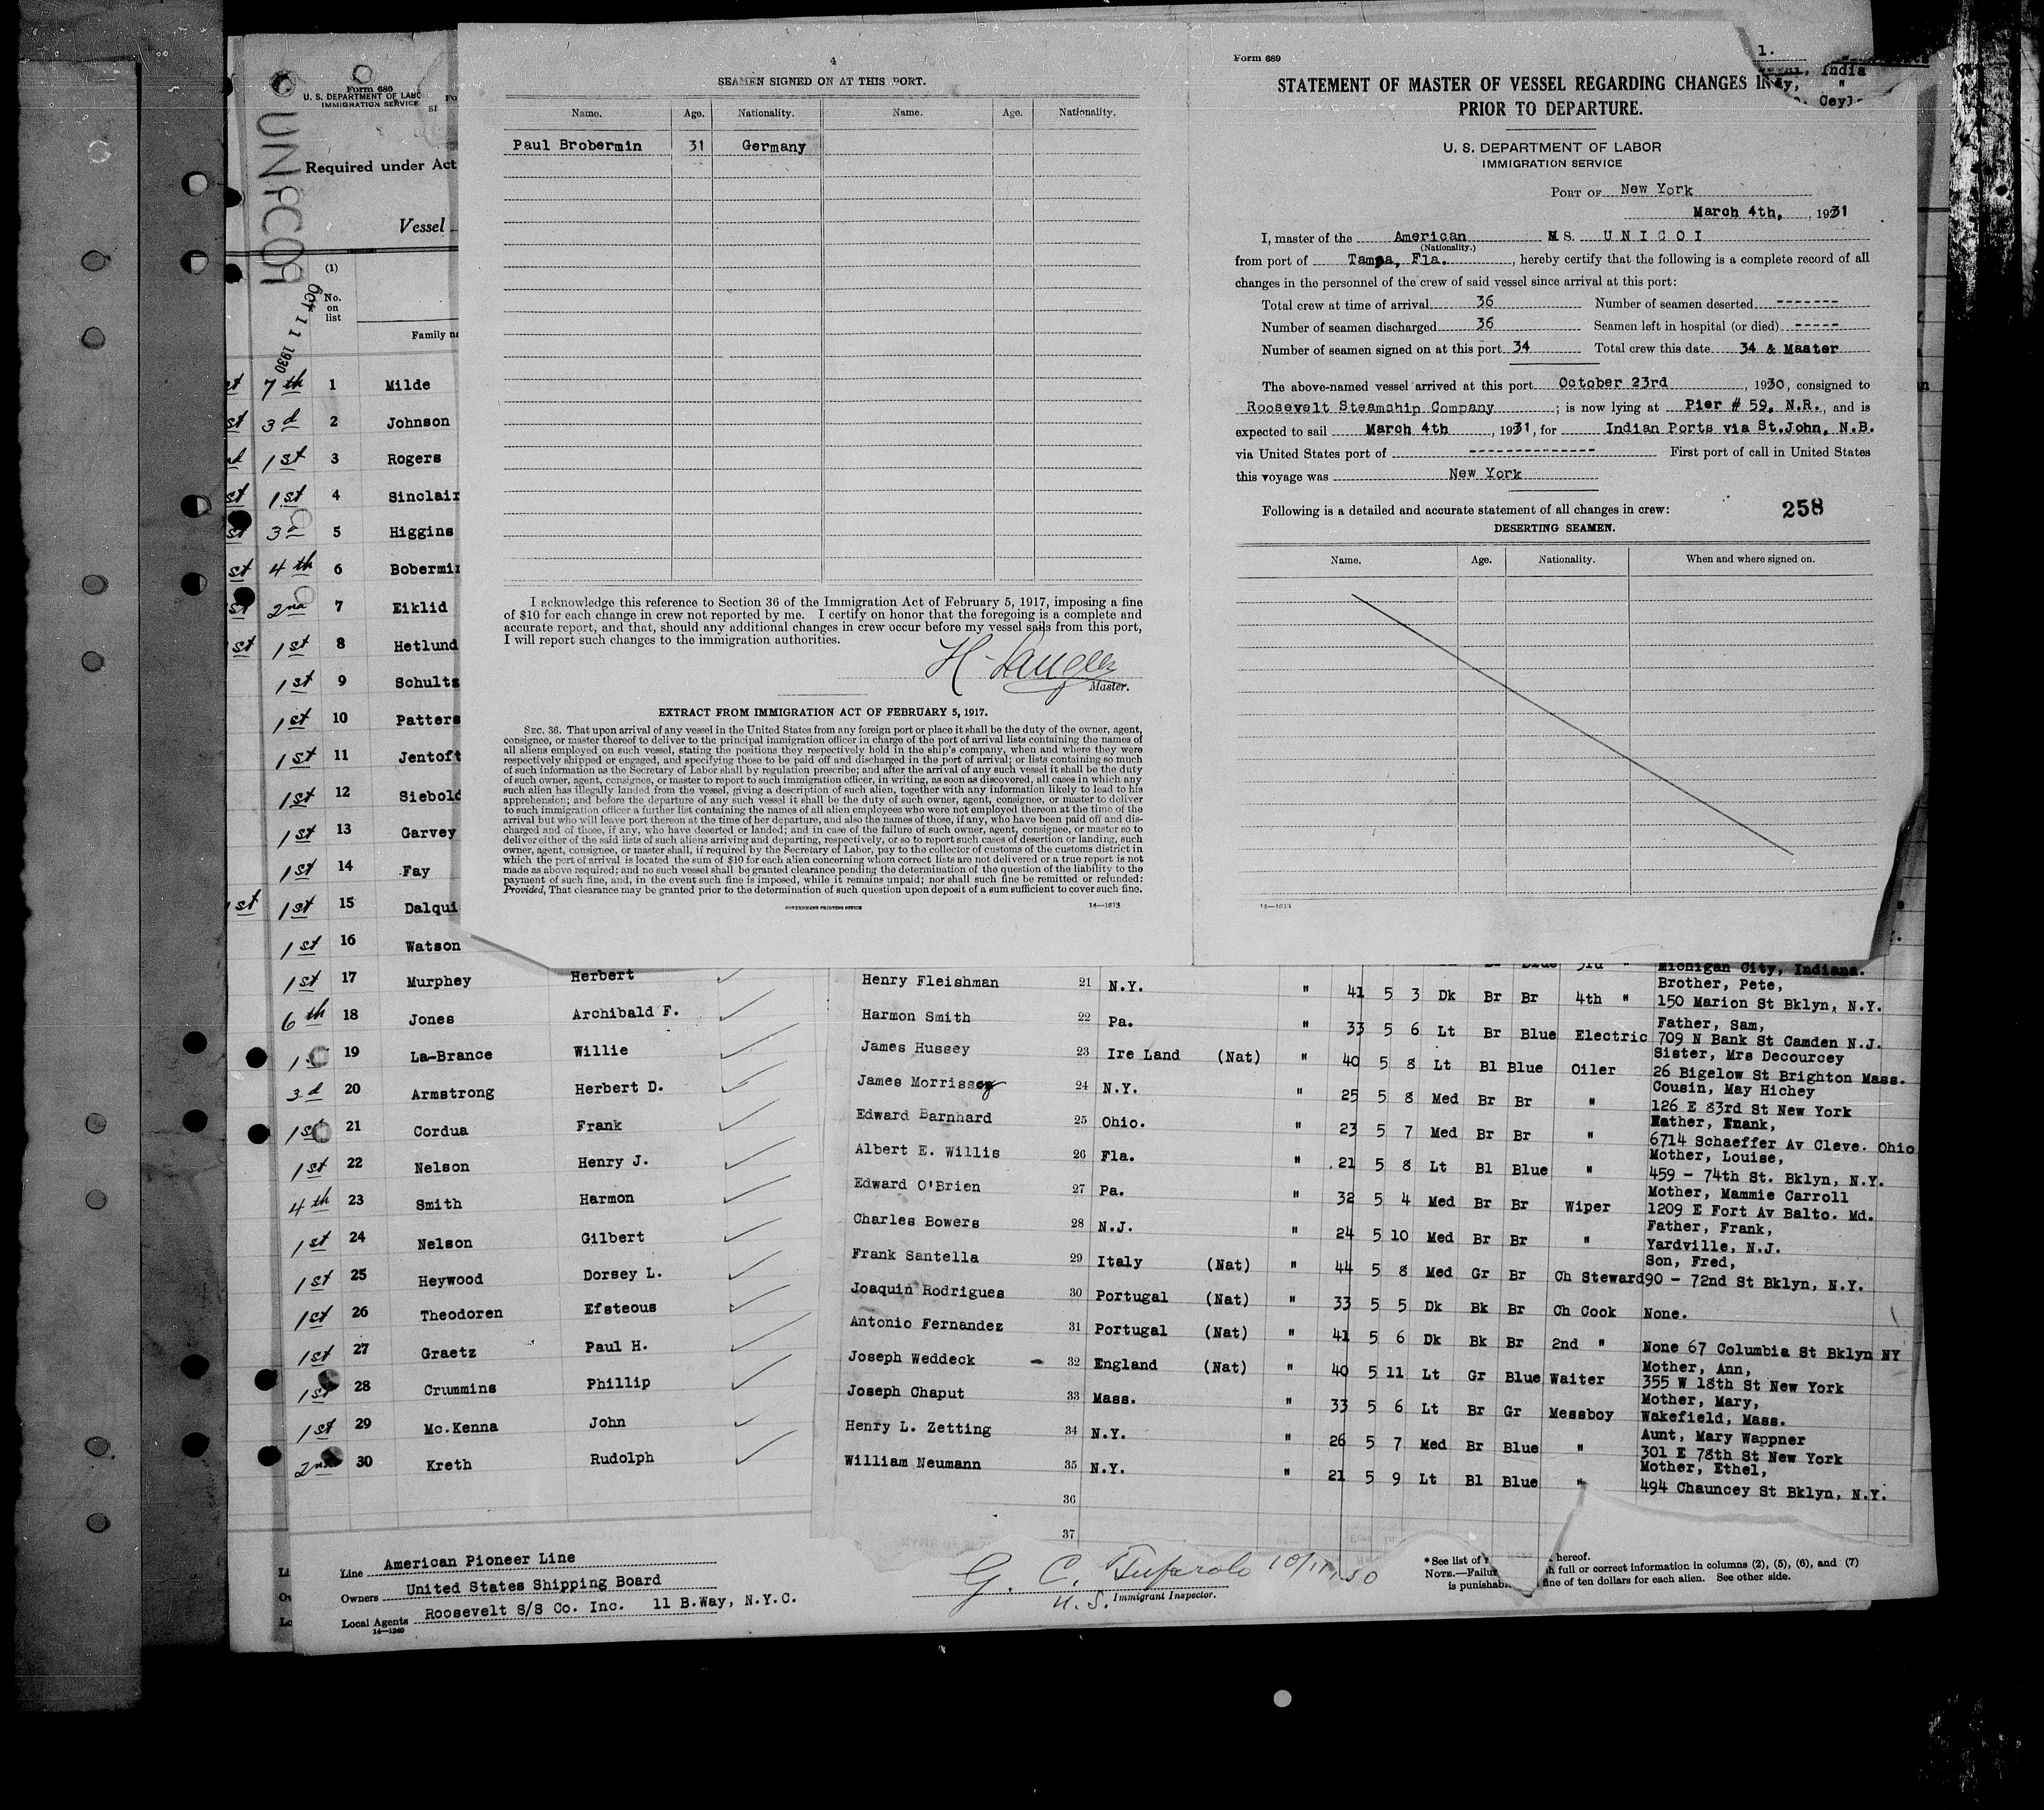 Form 680
U. S. DEPARTMENT OF LABO
IMMIGRATION SERVICE
Required under Act
Vessel
UNICOI
Oct 11 1930
(1)
No. on list
Family na
7th 1 Milde
3d 2 Johnson
1st 3 Rogers
1st 4 Sinclair
3d 5 Higgins
4th 6 Bobermin
2nd 7 Eiklid
1st 8 Hetlund
1st 9 Schultz
1st 10 Patters
1st 11 Jentoft
1st 12 Siebold
1st 13 Garvey
1st 14 Fay
1st 15 Dalqui
1st 16 Watson
1st 17 Murphey Herbert
6th 18 Jones Archibald F.
19 La-Brance Willie
3d 20 Armstrong Herbert D.
1st 21 Cordua Frank
1st 22 Nelson Henry J.
4th 23 Smith Harmon
1st 24 Nelson Gilbert
1st 25 Heywood Dorsey L.
1st 26 Theodoren Efsteous
1st 27 Graetz Paul H.
1st 28 Crummins Phillip
1st 29 Mc.Kenna John
2nd 30 Kreth Rudolph
Line American Pioneer Line
Owners United States Shipping Board
Local Agents Roosevelt S/S Co. Inc. 11 B.Way, N.Y.C.
14—1240
4
SEAMEN SIGNED ON AT THIS PORT.
Name. Age. Nationality. Name. Age. Nationality.
Paul Brobermin 31 Germany
I acknowledge this reference to Section 36 of the Immigration Act of February 5, 1917, imposing a fine
of $10 for each change in crew not reported by me. I certify on honor that the foregoing is a complete and
accurate report, and that, should any additional changes in crew occur before my vessel sails from this port,
I will report such changes to the immigration authorities.
Master.
EXTRACT FROM IMMIGRATION ACT OF FEBRUARY 5, 1917.
SEC. 36. That upon arrival of any vessel in the United States from any foreign port or place it shall be the duty of the owner, agent,
consignee, or master thereof to deliver to the principal immigration officer in charge of the port of arrival lists containing the names of
all aliens employed on such vessel, stating the positions they respectively hold in the ship's company, when and where they were
respectively shipped or engaged, and specifying those to be paid off and discharged in the port of arrival; or lists containing so much
of such information as the Secretary of Labor shall by regulation prescribe; and after the arrival of any such vessel it shall be the duty
of such owner, agent, consignee, or master to report to such immigration officer, in writing, as soon as discovered, all cases in which any
such alien has illegally landed from the vessel, giving a description of such alien, together with any information likely to lead to his
apprehension; and before the departure of any such vessel it shall be the duty of such owner, agent, consignee, or master to deliver
to such immigration officer a further list containing the names of all alien employees who were not employed thereon at the time of the
arrival but who will leave port thereon at the time of her departure, and also the names of those, if any, who have been paid off and dis-
charged and of those, if any, who have deserted or landed; and in case of the failure of such owner, agent, consignee, or master so to
deliver either of the said lists of such aliens arriving and departing, respectively, or so to report such cases of desertion or landing, such
owner, agent, consignee, or master shall, if required by the Secretary of Labor, pay to the collector of customs of the customs district in
which the port of arrival is located the sum of $10 for each alien concerning whom correct lists are not delivered or a true report is not
made as above required; and no such vessel shall be granted clearance pending the determination of the question of the liability to the
payment of such fine, and, in the event such fine is imposed, while it remains unpaid; nor shall such fine be remitted or refunded:
Provided, That clearance may be granted prior to the determination of such question upon deposit of a sum sufficient to cover such fine.
GOVERNMENT PRINTING OFFICE 14—1613
Form 689
STATEMENT OF MASTER OF VESSEL REGARDING CHANGES IN
PRIOR TO DEPARTURE.
U. S. DEPARTMENT OF LABOR
IMMIGRATION SERVICE
PORT OF New York
March 4th, , 1931
I, master of the American MS. UNICOI
(Nationality.)
from port of Tampa, Fla. , hereby certify that the following is a complete record of all
changes in the personnel of the crew of said vessel since arrival at this port:
Total crew at time of arrival 36 Number of seamen deserted -------
Number of seamen discharged 36 Seamen left in hospital (or died) -----
Number of seamen signed on at this port 34 Total crew this date 34 & Master
The above-named vessel arrived at this port October 23rd , 1930, consigned to
Roosevelt Steamship Company ; is now lying at Pier # 59, N.R., and is
expected to sail March 4th , 1931, for Indian Ports via St.John, N.B.
via United States port of -------------- First port of call in United States
this voyage was New York
Following is a detailed and accurate statement of all changes in crew: 258
DESERTING SEAMEN.
Name. Age. Nationality. When and where signed on.
14—1613
1.
, India
y, "
. Ceyl
Michigan City, Indiana.
Henry Fleishman 21 N.Y. " 41 5 3 Dk Br Br 4th " Brother, Pete,
150 Marion St Bklyn, N.Y.
Harmon Smith 22 Pa. " 33 5 6 Lt Br Blue Electric Father, Sam,
709 N Bank St Camden N.J.
James Hussey 23 Ire Land (Nat) " 40 5 8 Lt Bl Blue Oiler Sister, Mrs Decourcey
26 Bigelow St Brighton Mass.
James Morrissey 24 N.Y. " 25 5 8 Med Br Br " Cousin, May Hichey
126 E 83rd St New York
Edward Barnhard 25 Ohio. " 23 5 7 Med Br Br " Father, Frank,
6714 Schaeffer Av Cleve. Ohio
Albert E. Willis 26 Fla. " 21 5 8 Lt Bl Blue " Mother, Louise,
459 - 74th St. Bklyn, N.Y.
Edward O'Brien 27 Pa. " 32 5 4 Med Br Br Wiper Mother, Mammie Carroll
1209 E Fort Av Balto. Md.
Charles Bowers 28 N.J. " 24 5 10 Med Br Br " Father, Frank,
Yardville, N.J.
Frank Santella 29 Italy (Nat) " 44 5 8 Med Gr Br Ch Steward Son, Fred,
90 - 72nd St Bklyn, N.Y.
Joaquin Rodrigues 30 Portugal (Nat) " 33 5 5 Dk Bk Br Ch Cook None.
Antonio Fernandez 31 Portugal (Nat) " 41 5 6 Dk Bk Br 2nd " None 67 Columbia St Bklyn NY
Joseph Weddeck 32 England (Nat) " 40 5 11 Lt Gr Blue Waiter Mother, Ann,
355 W 18th St New York
Joseph Chaput 33 Mass. " 33 5 6 Lt Br Gr Messboy Mother, Mary,
Wakefield, Mass.
Henry L. Zetting 34 N.Y. " 26 5 7 Med Br Blue " Aunt, Mary Wappner
301 E 78th St New York
William Neumann 35 N.Y. " 21 5 9 Lt Bl Blue " Mother, Ethel,
494 Chauncey St Bklyn, N.Y.
36
37
G. C. 10/11/30
U.S. Immigrant Inspector.
*See list of hereof.
NOTE.—Failur h full or correct information in columns (2), (5), (6), and (7)
is punishab fine of ten dollars for each alien. See other side.